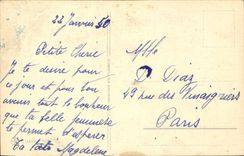 22 Janvier 50
Petite Cherie
Je te désire pour
ce jour et pour ton
avenir tout le bonheur
que ta belle jeunesse
te permet d'esperer
Ta tata Magdeleine
Mlle
D. Diaz
49 rue des Vinaigriers
Paris